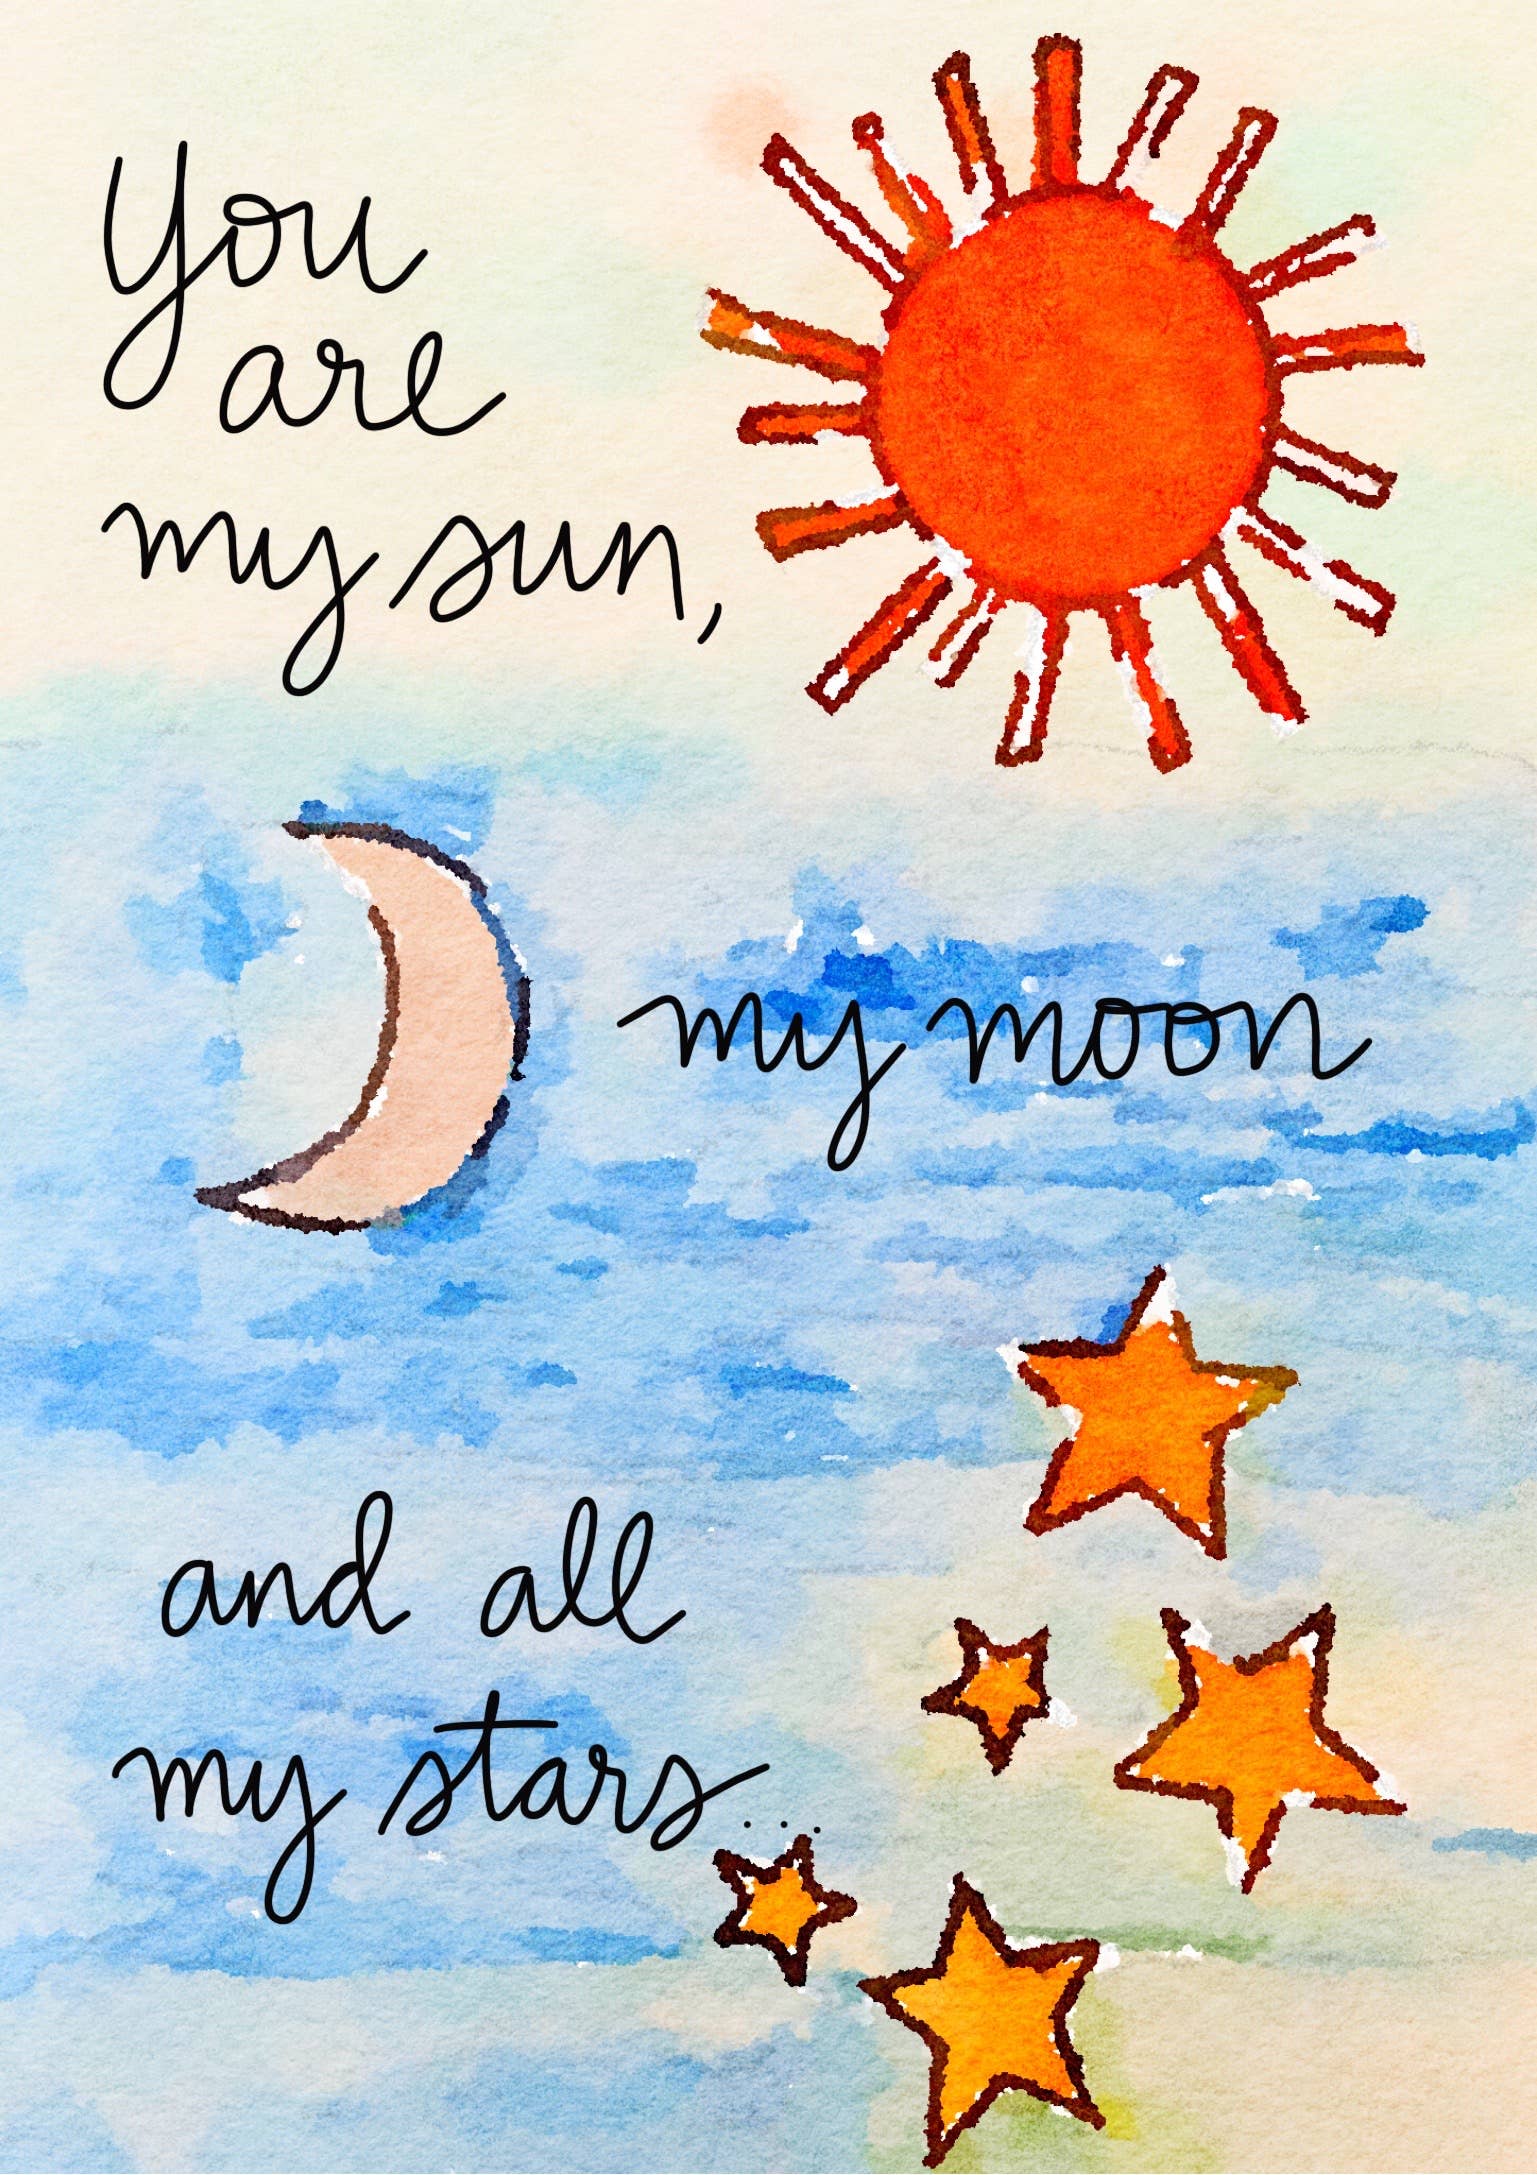 You
are
my sun,
my moon
and all
my stars...